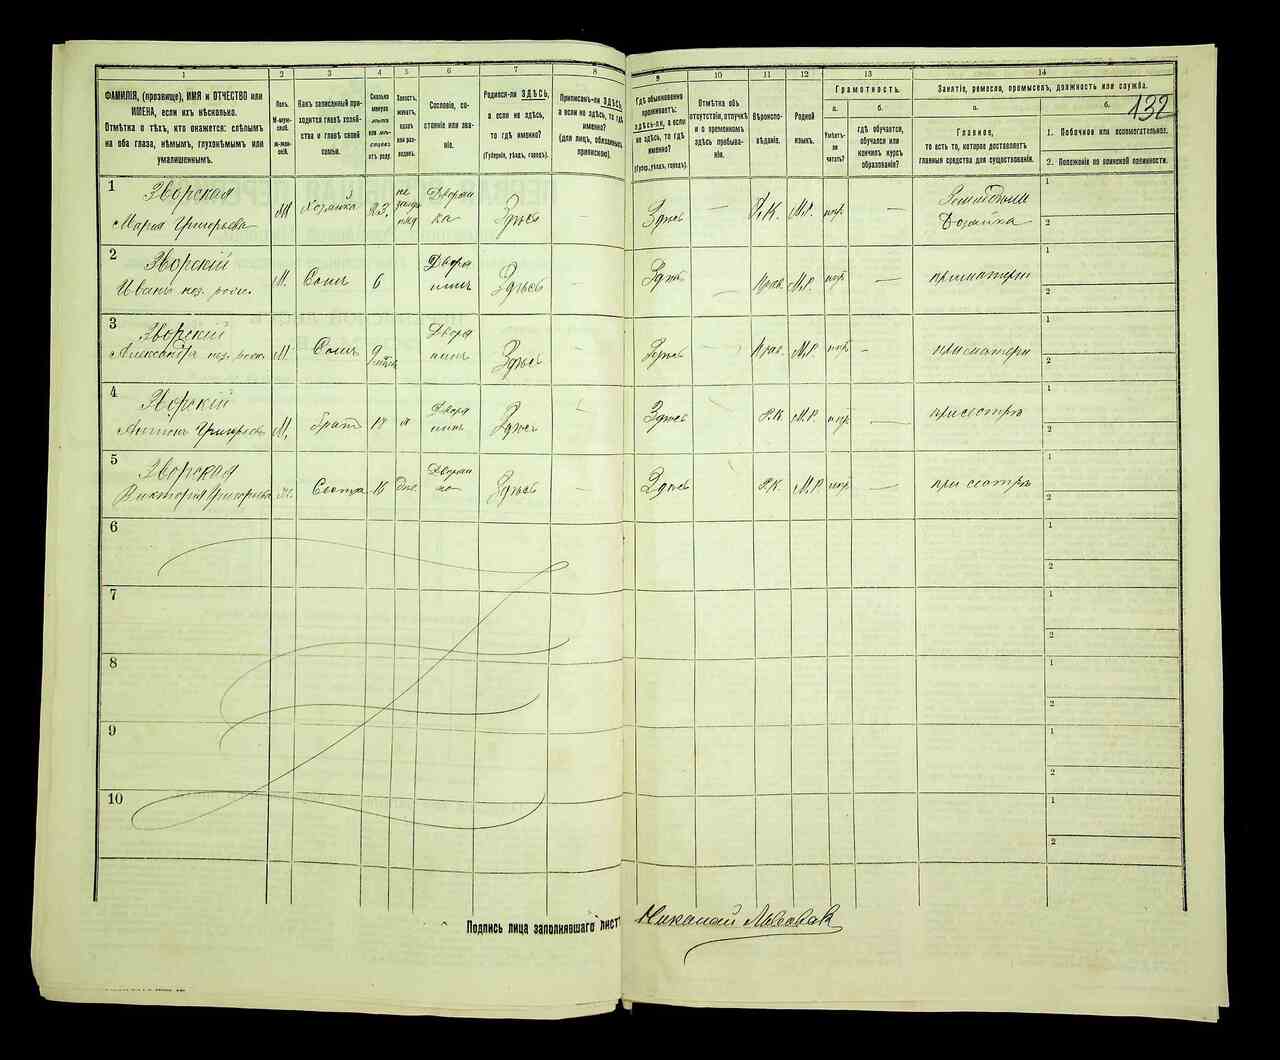 1 2 3 4 5 6 7 8 9 10 11 12 13 14
132
ФАМИЛІЯ, (прозвище), ИМЯ и ОТЧЕСТВО или
ИМЕНА, если ихъ нѣсколько.
Отмѣтка о тѣхъ, кто окажется: слѣпымъ
на оба глаза, нѣмымъ, глухонѣмымъ или
умалишеннымъ.
Полъ.
М-муж-
ской.
ж-жен-
скій.
Какъ записанный при-
ходится главѣ хозяй-
ства и главѣ своей
семьи.
Сколько
минуло
лѣтъ
или мѣ-
сяцевъ
отъ роду.
Холостъ,
женатъ,
вдовъ
или раз-
веденъ.
Сословіе, со-
стояніе или зва-
ніе.
Родился-ли ЗДѢСЬ,
а если не здѣсь,
то гдѣ именно?
(Губернія, уѣздъ, городъ).
Приписанъ-ли ЗДѢСЬ,
а если не здѣсь, то гдѣ
именно?
(для лицъ, обязанныхъ
припискою).
Гдѣ обыкновенно
проживаетъ:
здѣсь-ли, а если
не здѣсь, то гдѣ
именно?
(Губер., уѣздъ, городъ).
Отмѣтка объ
отсутствіи, отлучкѣ
и о временномъ
здѣсь пребыва-
ніи.
Вѣроиспо-
вѣданіе.
Родной
языкъ.
Грамотность.
а.
Умѣетъ-
ли
читать?
б.
гдѣ обучается,
обучался или
кончилъ курсъ
образованія?
Занятіе, ремесло, промыселъ, должность или служба.
а.
Главное,
то есть то, которое доставляетъ
главныя средства для существованія.
б.
1. Побочное или вспомогательное.
2. Положеніе по воинской повинности.
1 Зворская
Марія Григорьева Хозяйка 23. Дворян
ка Здѣсь — Здѣсь — Р.К. М.Р. — Хозяйка
1
2
2 Зворскій
Иванъ М. Сынъ 6 Дворя
нинъ Здѣсь — Здѣсь — Прав. М.Р. — при матери
1
2
3 Зворскій
Александръ М. Сынъ Дворя
нинъ Здѣсь — Здѣсь — Прав. М.Р. — при матери
1
2
4 Зворскій
Антонъ Григорьевъ М. Братъ Дворя
нинъ Здѣсь Здѣсь Р.К. М.Р. — при сестрѣ
1
2
5 Зворская
Викторія Григорьева Сестра 16 Дворян
ка Здѣсь — Здѣсь Р.К. М.Р. — при сестрѣ
1
2
6
1
2
7
1
2
8
1
2
9
1
2
10
1
2
Подпись лица заполнявшаго листъ Николай